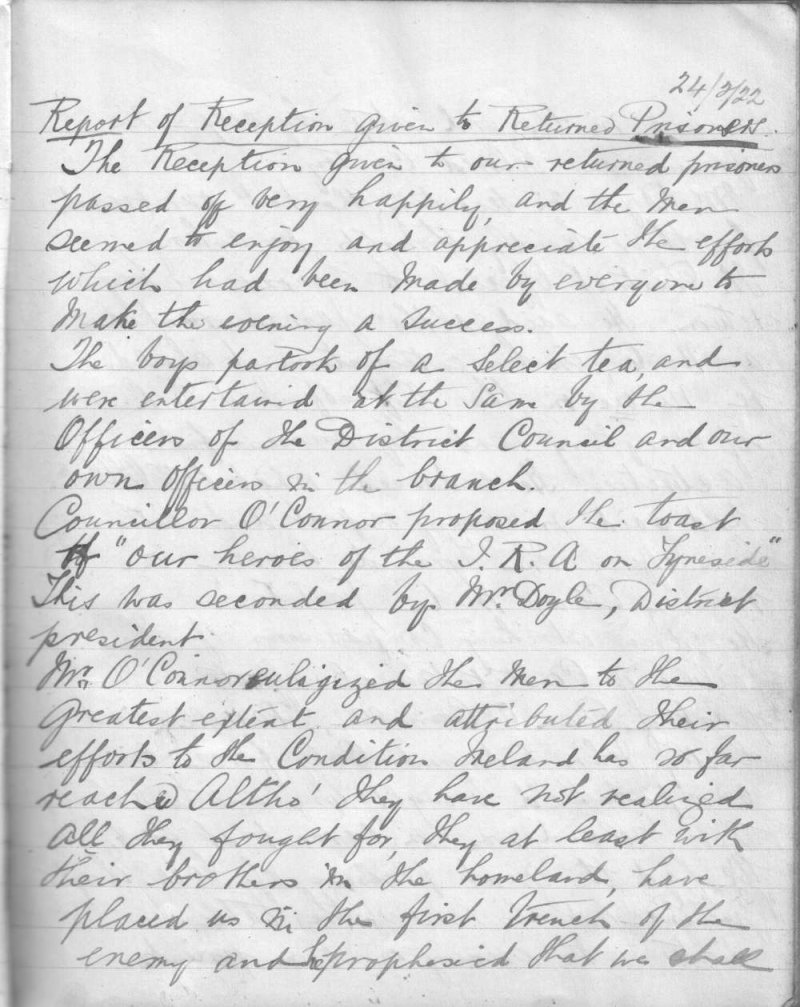 24/2/22
Report of Reception given to Returned Prisoners.
The Reception given to our returned prisoners
passed off very happily, and the men
seemed to enjoy and appreciate the efforts
which had been made by everyone to
make the evening a success.
The boys partook of a select tea, and
were entertained at the same by the
Officers of the District Council and our
own officers in the branch.
Councillor O'Connor proposed the toast
of "our heroes of the I. R. A on Tyneside"
This was seconded by Mr Doyle, District
president.
Mr. O'Connor euligized the men to the
greatest extent and attributed their
efforts to the Condition Ireland has so far
reached Altho' they have not realized
all they fought for, they at least with
their brothers in the homeland, have
placed us in the first trench of the
enemy and he prophesied that we shall